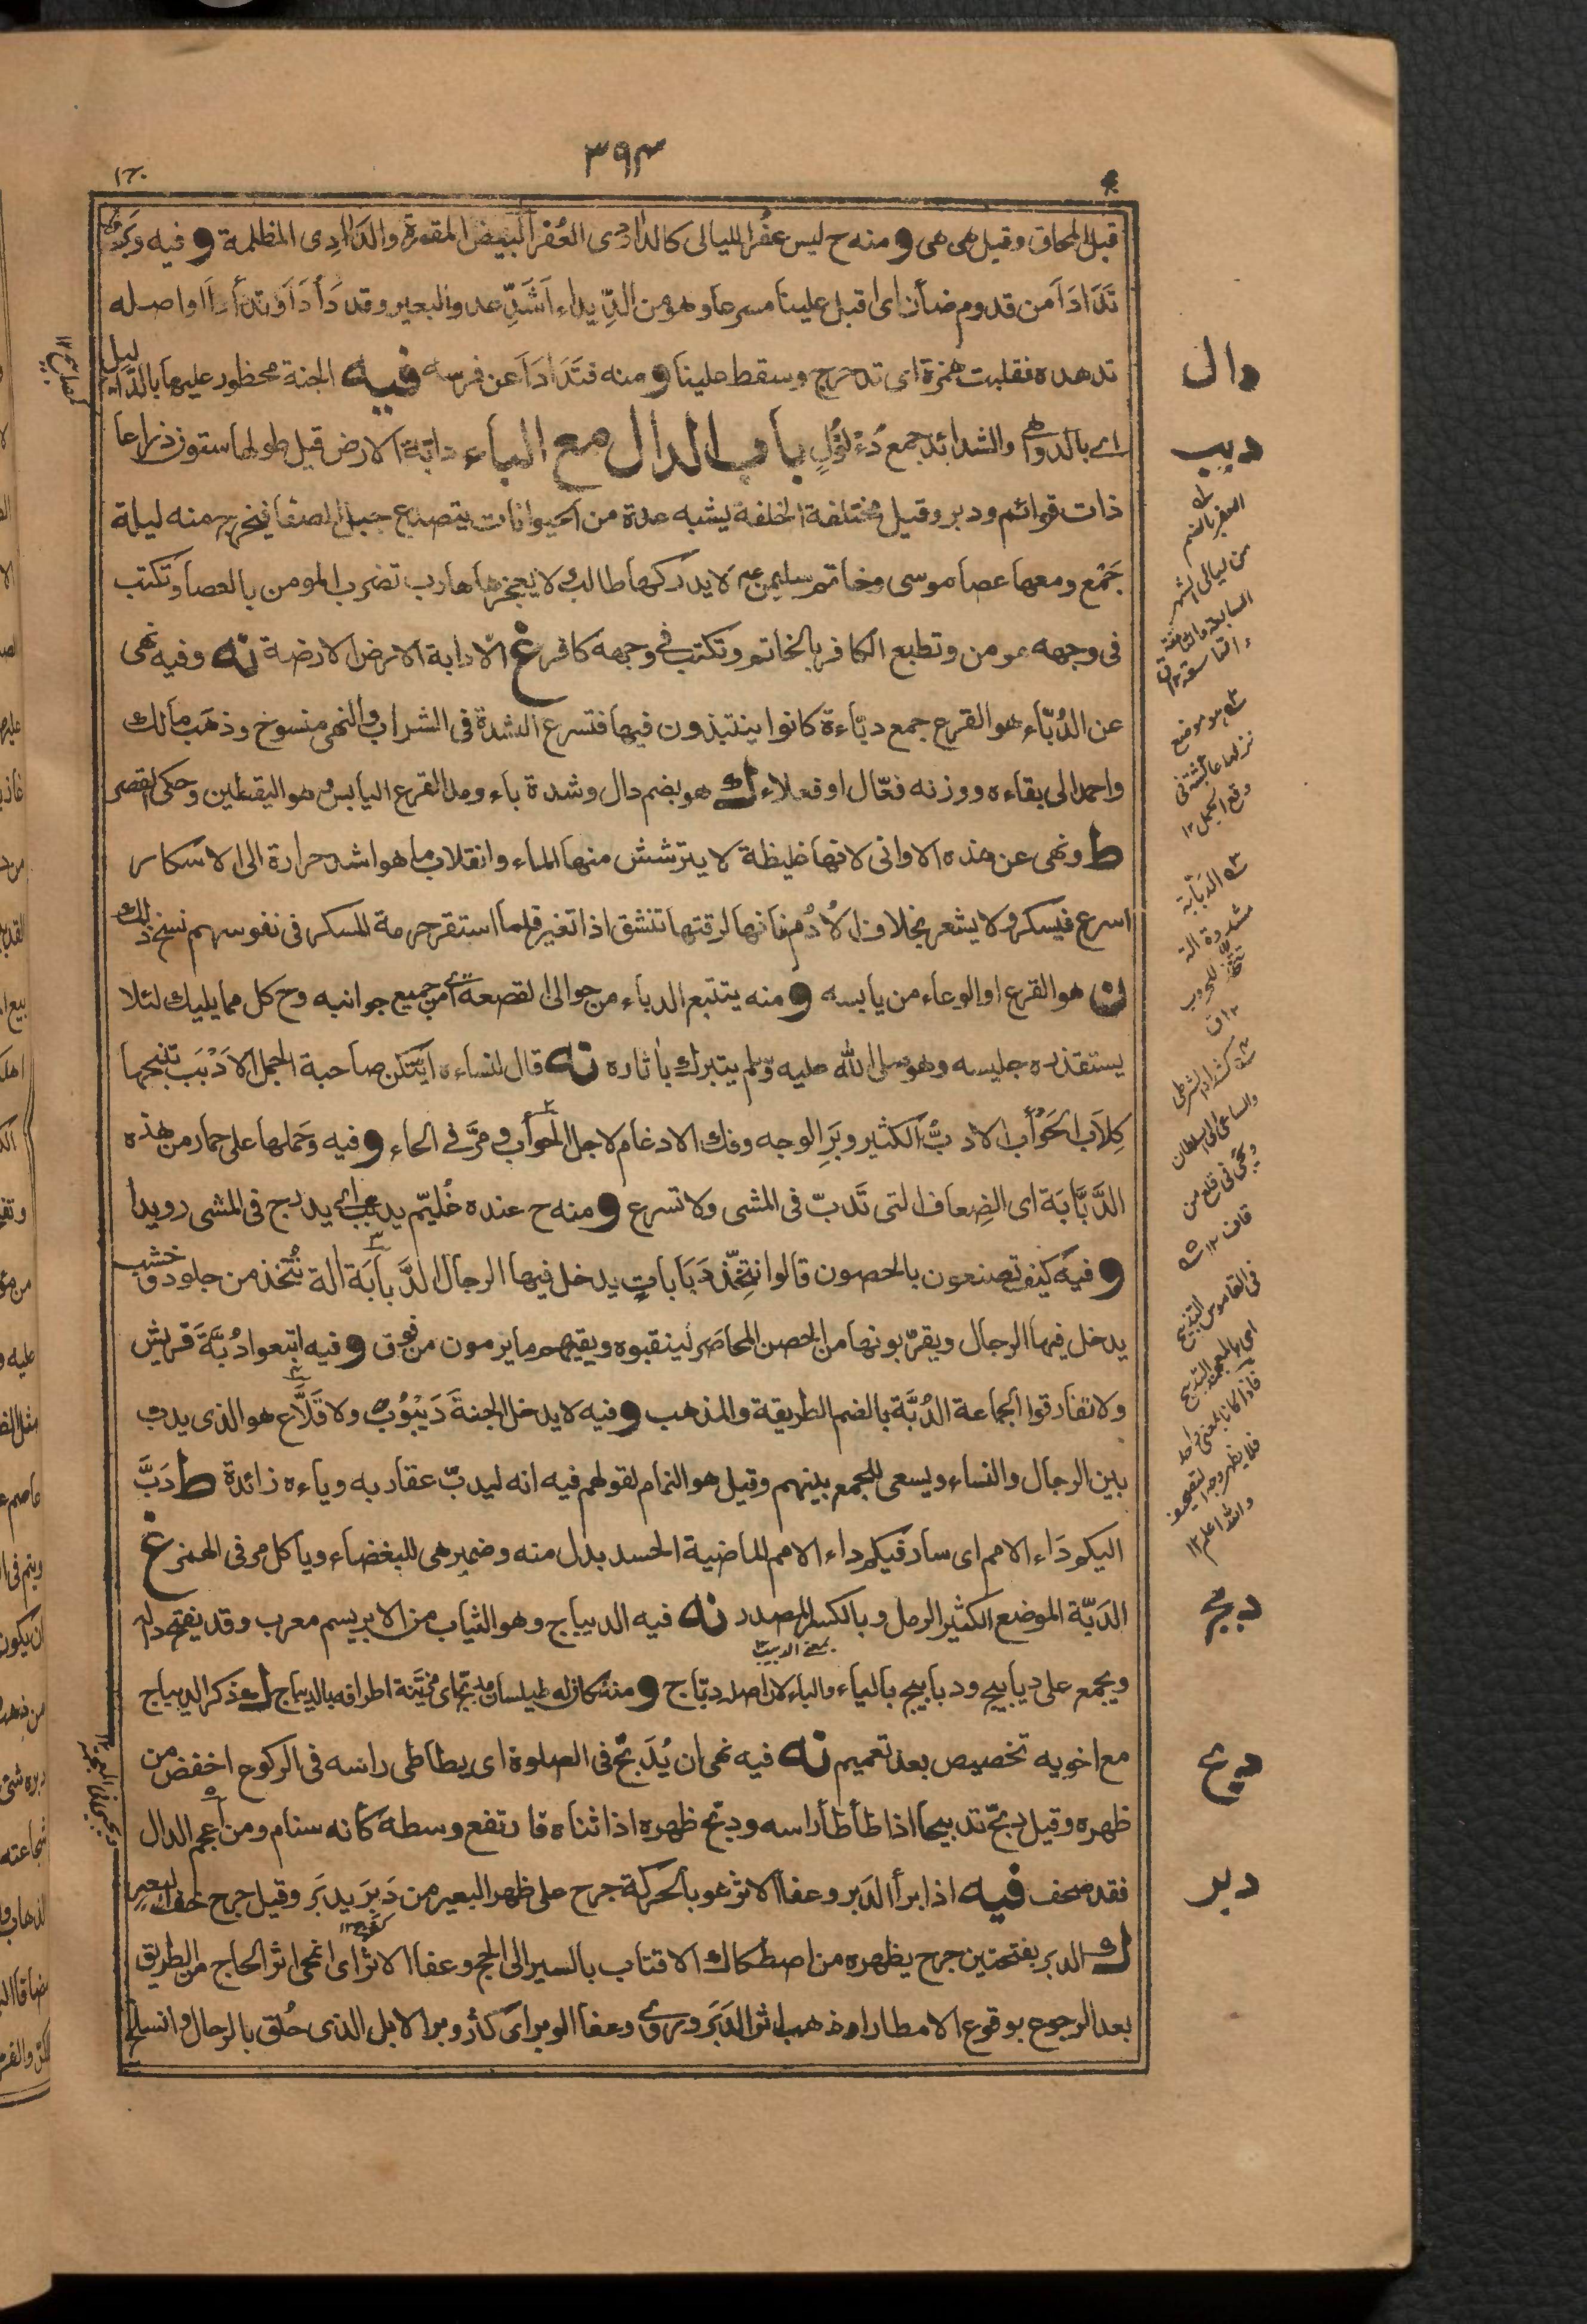 ٣٩٣
قبل المحاق وقيل هى هى و منه ح ليس عُفر الليالى كالدادى العُفر البيض المقمرة والدادِى المظلمة و فيه وَبَر
تَدَأدَأ من قدوم ضأن اى اقبل علينا مسرعا وهو من الدِّيداء اَشَدِّ عدو البعير وقد دَأدَأ وتدأدأ واصله
تدهده فقلبت همزة اى تدحرج وسقط علينا و منه فتَدَأدَأ عن فرسه فيه الجنة محظور عليها بالدآليل
اى بالدواهى والشدائد جمع دُءْلُوْلٍ باب الدال مع الباء دابّة الارض قيل طولها ستون ذراعا
ذات قوائم ودبر وقيل مختلفة الخلقة يشبه عدة من الحيوانات يتصدع جبل الصفا فيخرج منه ليلة
جَمْع ومعها عصا موسى وخاتم سليمن لا يدركها طالب لا يعجزها هارب تضرب المومن بالعصا وتكتب
فى وجهه مومن وتطبع الكافر بالخاتم وتكتب فى وجهه كافر غ الا دابة الارض الارضة نه وفيه نهى
عن الدُبّاء هو القرع جمع دبّاءة كانوا ينتبذون فيها فتسرع الشدة فى الشراب والنهى منسوخ وذهب مالك
واحمد الى بقاءه ووزنه فعّال او فعلاء ك هو بضم دال وشدة باء ومد القرع اليابس وهو اليقطين وحكى القصر
ط ونهى عن هذه الاوانى لانها غليظة لا يترشش منها الماء وانقلاب ما هو اشد حرارة الى الاسكار
اسرع فيسكر ولا يشعر بخلاف الاُدُم فانها لرقتها تنشق اذا تغير فلما استقر حرمة المسكر فى نفوسهم نسخ ذلك
ن هو القرع او الوعاء من يابسه و منه يتتبع الدباء من حوالى القصعة اى من جميع جوانبه وح كل مما يليك لئلا
يستقذره جليسه وهو صلى الله عليه وسلم يتبرك بأثاره نه قال لنساءه اَيّتكن صاحبة الجمل الاَدْبَب تنبحها
كِلاَب الحَوْأب الادبّ الكثير وبَرِ الوجه وفك الادغام لاجل الحوأب ومرَّ فى الحاء و فيه وحَملها على حمار من هذه
الدَّبَّابَة اى الضِعاف التى تَدبّ فى المشى ولا تسرع و منه ح عنده غُليّم يدبب اى يدرج فى المشى رويدا
و فيه كيف تصنعون بالحصون قالوا نتخِّذ دَبَاباتٍ يدخل فيها الرجال الدَّبابَة الة تُتّخذ من جلود وخشب
يدخل فيها الرجال ويقرّبونها من الحصن المحاصَر لينقبوه ويقيهم ما يرمون من فوق و فيه اتبعوا دُبَّةَ قريش
ولا تفارقوا الجماعة الدُبَّة بالضم الطريقة والمذهب و فيه لا يدخل الجنةَ دَيْبُوْب ولا قَلاَّع هو الذى يدب
بين الرجال والنساء ويسعى للجمع بينهم وقيل هو النمام لقولهم فيه انه ليدبّ عقاربه وياءه زائدة ط دَبَّ
اليكم دَاء الامم اى سار فيكم داء الامم الماضية الحسد بدل منه وضمير هى للبغضاء ويأكل مر فى الهمز غ
الدَبّة الموضع الكثير الرمل وبالكسر المصدر نه فيه الديباج وهو الثياب من الابريسم معرب وقد يفتح داله
بمعنى الدبيب
ويجمع على ديابيج ودبابيج بالياء والباء لان اصله دبّاج و منه كان له طيلسان مدبّج اى مُزيّنة اطرافه بالديباج ك ذكر الديباج
مع اخويه تخصيص بعد تعميم نه فيه نهى ان يُدَبِّح فى الصلوة اى يطاطى راسه فى الركوع اخفض من
ظهره وقيل دبّح تدبيحا اذا طأطأ راسه ودبّح ظهره اذا ثناه فارتفع وسطه كأنه سنام ومن اعجم الدال
فقد صحف فيه اذا برأ الدَبر وعفا الاثر هو بالحركة جرح على ظهر البعير من دَبِرَ يدبَر وقيل جرح خف البعير
ك الدبر بفتحتين جرح يظهره من اصطكاك الاقتاب بالسير الى الحج وعفا الاثر اى انمحى اثر الحاج من الطريق
بعد الرجوع بوقوع الامطار او ذهب اثر الدَبَر وروى وعفا الوبر اى كثر وبر الابل الذى حُلق بالرحال وانسلخ
دال
دبب
العفر بالضم
من ليالى الشهر
السابعة والثامنة
والتاسعة
هو موضع
وقع الجمل ١٢
الدبّابة
مشددة الة
تتخذ للحروب
١٢ ق
والساعى الى السلطان
قاف ١٢
فى القاموس
والله اعلم ١٢
دبج
دبح
دبر